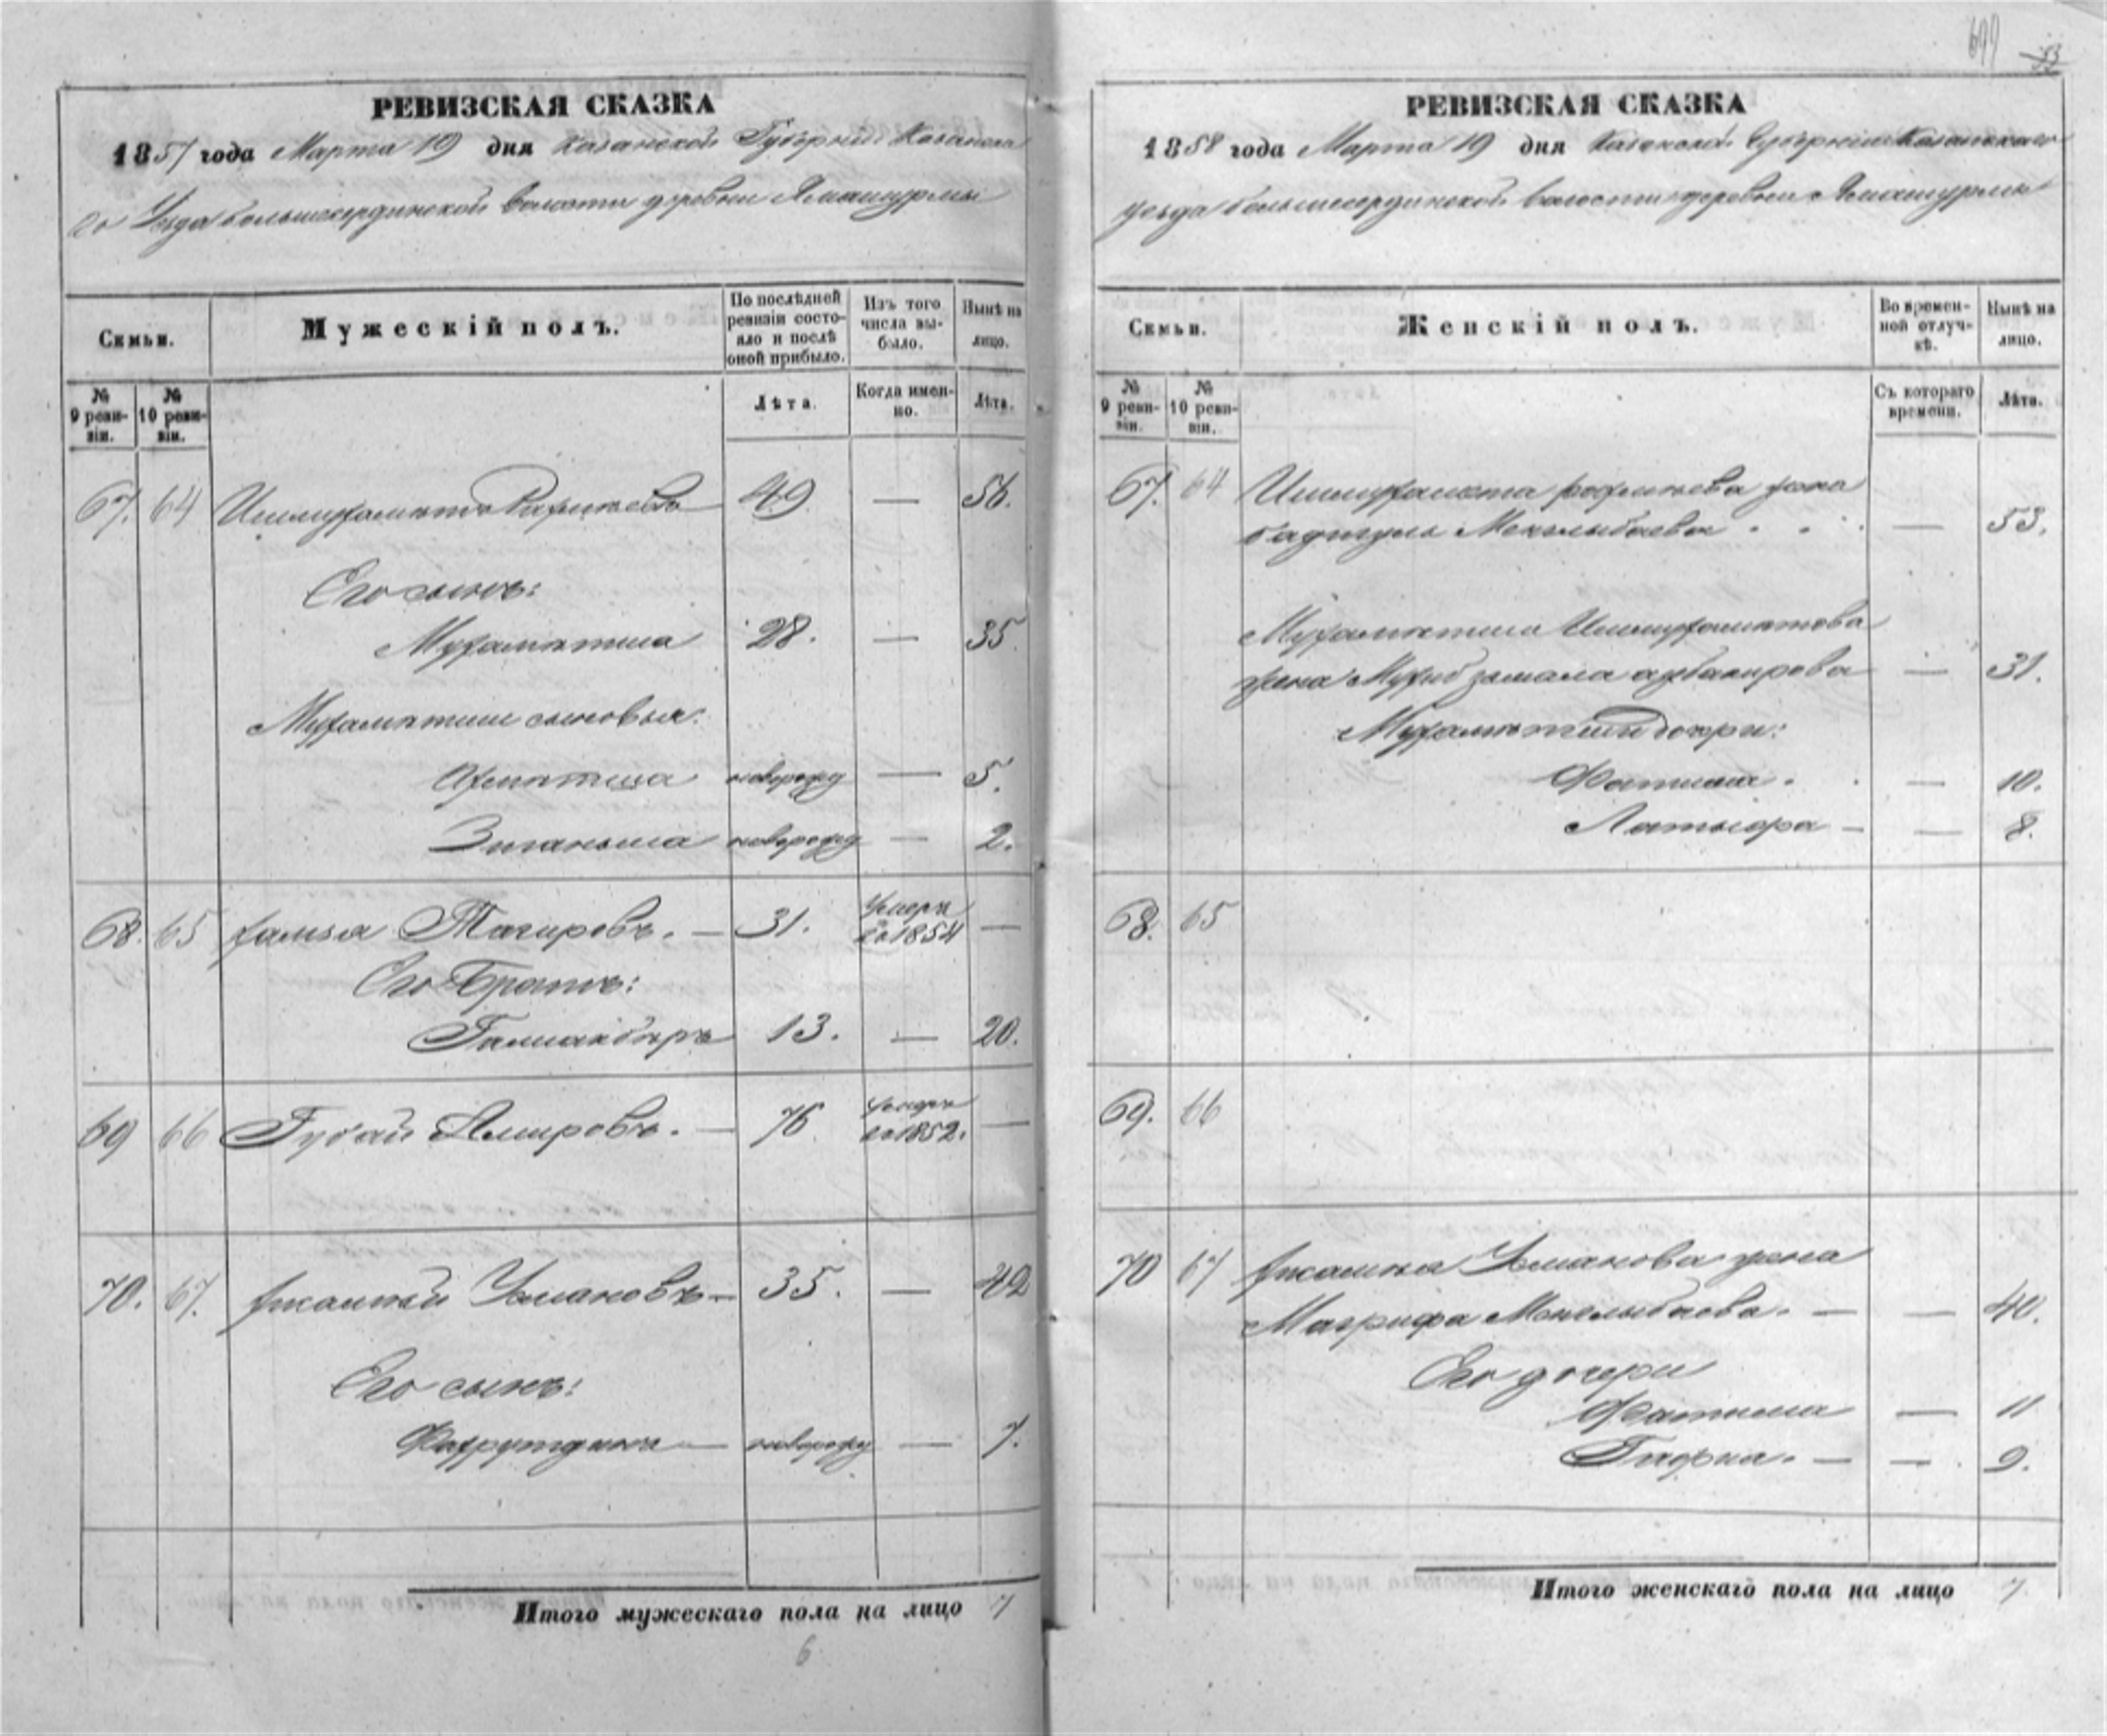 РЕВИЗСКАЯ СКАЗКА
1851 года Марта 19 дня Казанской Губерніи Казанска
го Уезда большесердинской волости деревни Ямашурмы
Семьи.
Мужескій полъ.
По послѣдней ревизіи состояло и послѣ оной прибыло.
Изъ того числа выбыло.
Нынѣ на лицо.
№ 9 ревизіи.
№ 10 ревизіи.
Лѣта.
Когда именно.
Лѣта.
67. 64 49 — 56.
Его сынъ:
Мухаметша 28. — 35.
Мухаметши сыновья:
Ахметша новорожд — 5.
Зиганьша новорожд — 2.
68. 65 Тагировъ. — 31. Умеръ въ 1854 —
Его братъ:
Галиакберъ 13. — 20.
69 66 Губай Амировъ. — 76 Умеръ въ 1852. —
70. 67. Усмановъ — 35. — 42
Его сынъ:
Фахрутдинъ — новорожд — 7.
Итого мужескаго пола на лицо 7
6
699
53
РЕВИЗСКАЯ СКАЗКА
1858 года Марта 19 дня Казанской Губерніи Казанскаго
уезда большесердинской волости деревни Ямашурмы
Семьи.
Женскій полъ.
Во временной отлучкѣ.
Нынѣ на лицо.
№ 9 ревизіи.
№ 10 ревизіи.
Съ котораго времени.
Лѣта.
67. 64 Ишмухамета рафикова жена
бадигуль — 53.
Мухаметши Ишмухаметова
жена — 31.
Мухаметши дочери:
Фатима. — 10.
— — 8.
68. 65
69. 66
70 67 Усманова жена
Магрифа — — 40.
Его дочери
Фатима — 11
— — 9.
Итого женскаго пола на лицо 7.